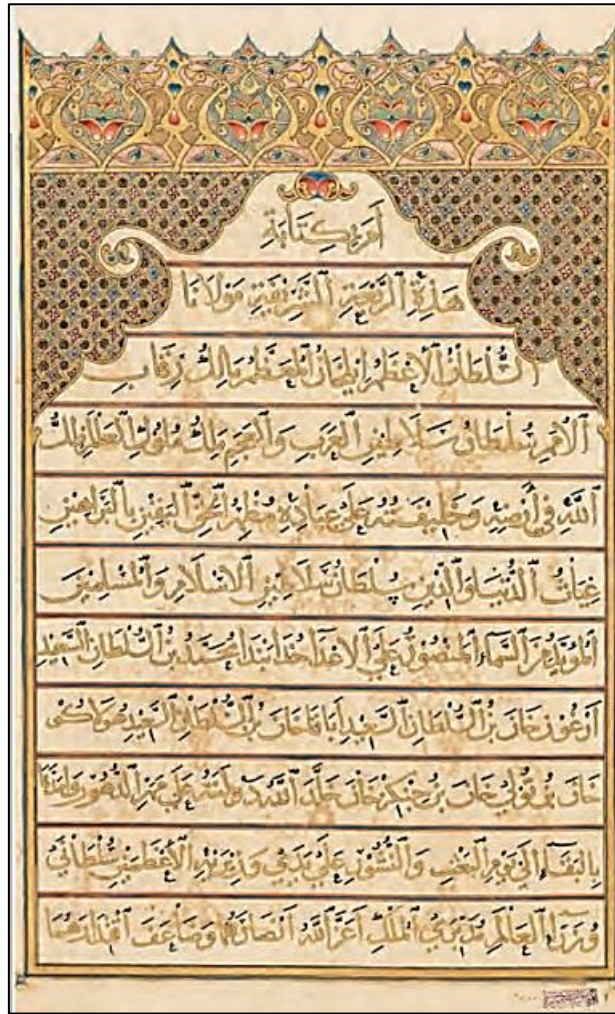 أمر بكتابة
هذه الربعة الشريفة مولانا
السلطان الأعظم إيلخان المعظم مالك رقاب
الأمم سلطان سلاطين العرب والعجم ملك ملوك العالم ظل
الله في أرضه وخليفته على عباده مظهر الحق اليقين بالبراهين
غياث الدنيا والدين سلطان سلاطين الاسلام والمسلمين
المؤيد من السماء المنصور على الاعدا خدابنده محمد بن السلطان السعيد
أرغون خان بن السلطان السعيد أباقا خان بن السلطان السعيد هولاكو
خان بن تولي خان بن جنكيز خان خلد الله دولته على ممر الدهور وامتدها
بالبقاء إلى يوم البعث والنشور على يدي وزيريه الأعظمين سلطاني
وزراء العالم مدبري الملك أعز الله أنصارهما وضاعف اقتدارهما